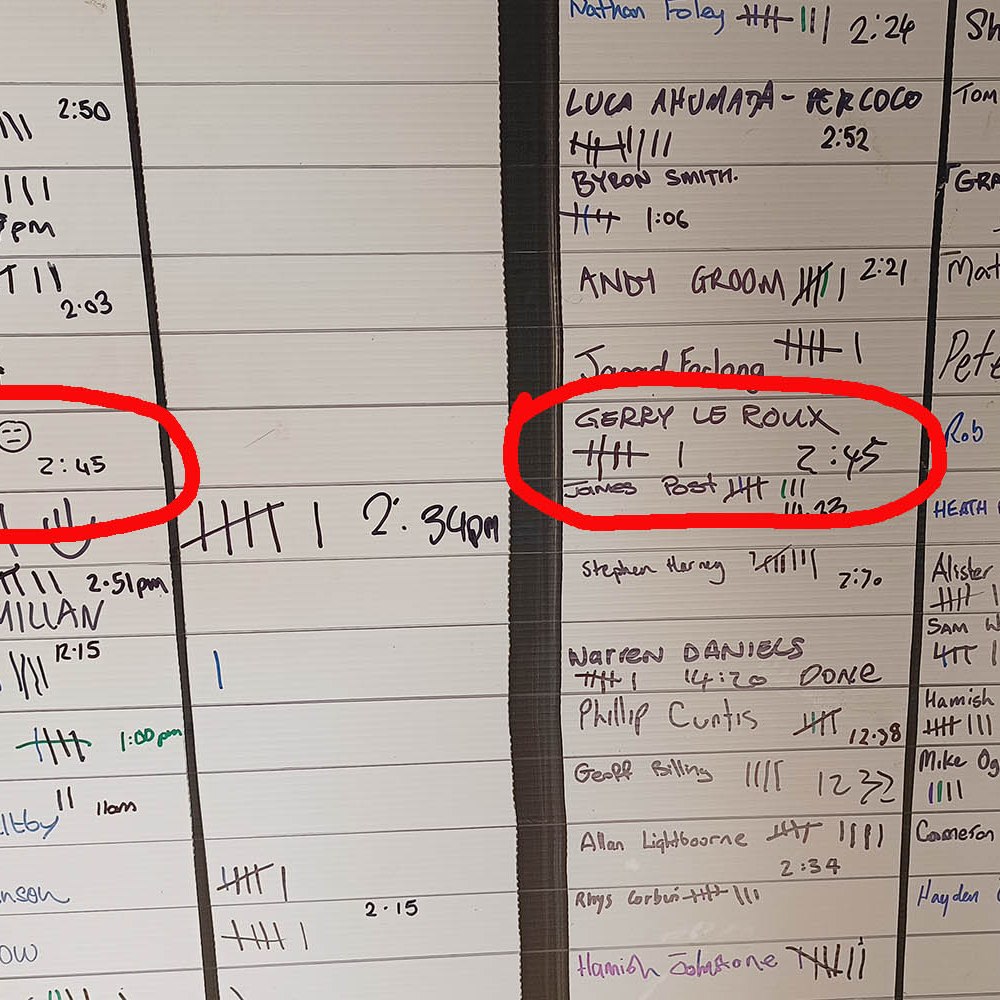 2:50
pm
2:03
2:45
2:34pm
2:51pm
MILLAN
12·15
1:00pm
11am
ltby
nson
2·15
ow
Nathan Foley 2:24
LUCA AHUMADA-PERCOCO
2:52
BYRON SMITH.
1:06
ANDY GROOM 2:21
GERRY LE ROUX
2:45
JAMES Post
14.23
Stephen Harney
WARREN DANIELS
14:20 DONE
Phillip Curtis
12.38
Geoff Billing
Allan Lightbourne
2:34
Rhys Corbin
Hamish Johnstone
Sh
TOM
GRA
Mat
Pete
Rob
HEATH
Alister
SAM W
Hamish
Mike Og
Cameron
Hayden